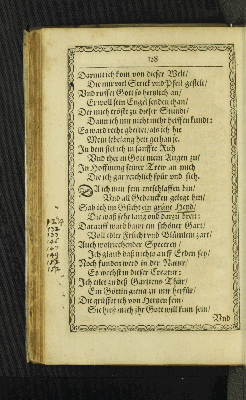 128
Damit ich kom von dieser Welt/
Die mir viel Strick und Pfeil gestelt/
Vnd ruffet Gott so hertzlich an/
Er woll sein Engel senden than/
Der mich tröst zu dieser Stundt/
Dann ich mir nicht mehr helffen kundt:
Es ward recht gbettet/ als ich hie
Mein lebelang hett gethan je.
In dem fiel ich in sanffte Ruh
Vnd thet in Gott mein Augen zu/
In Hoffnung seiner Trew an mich
Die ich gar reichlich spür und sich.
DA ich nun sein entschlaffen bin/
Vnd all Gedancken gelegt hin/
Sah ich im Gsicht ein grüne Heyd/
Die waß sehr lang und darzu breit:
Darauff ward bawt ein schöner Gart/
Voll edler Frücht und Blümlein zart/
Auch wolriechender Specerey/
Ich glaub daß nichts auff Erden sey/
Noch funden werd in der Natur/
Es wechst in dieser Creatur:
Ich eilet zu deß Gartens Thür/
Ein Göttin gieng zu mir herfür/
Die grüsset ich von Hertzen sein/
Sie hieß mich jhr Gott will kum sein/
Vnd